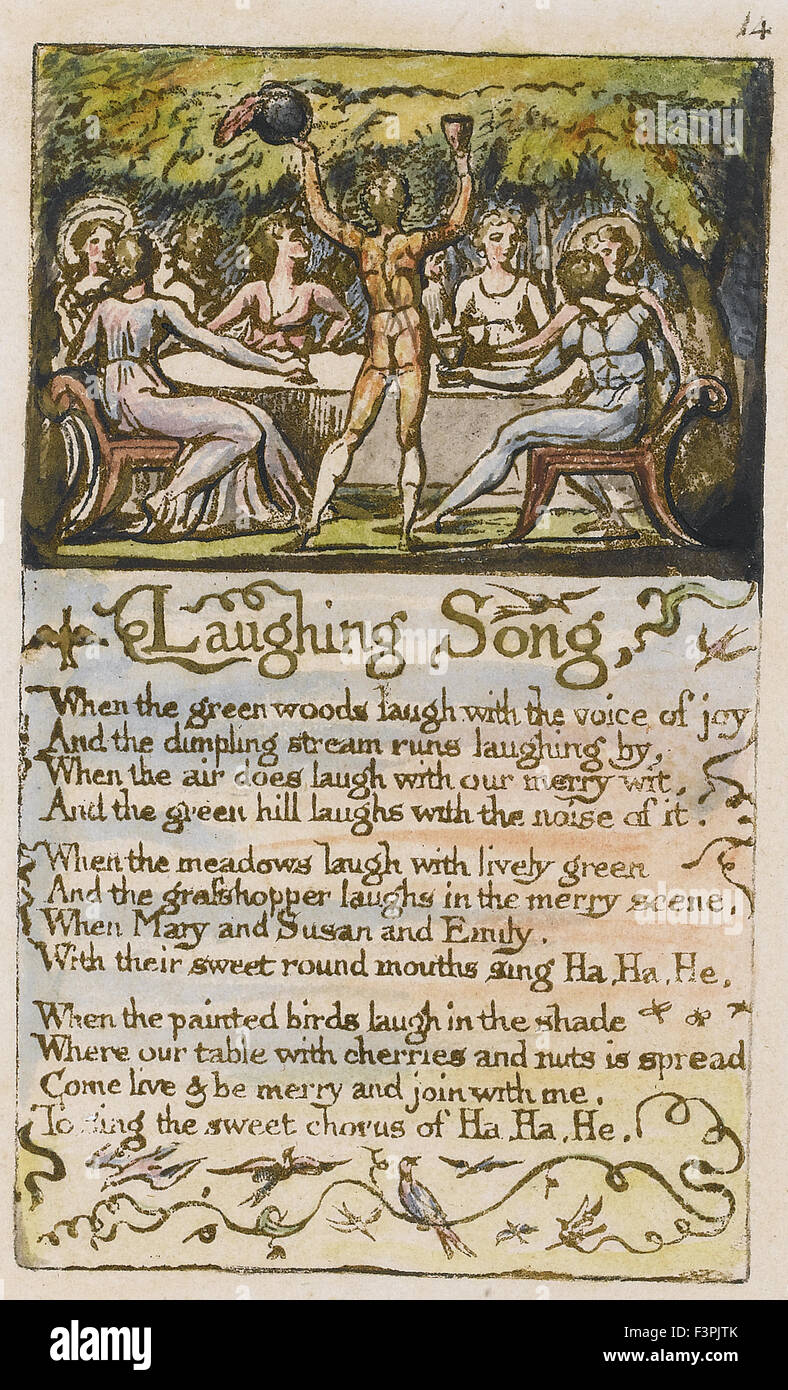 14
Laughing Song,
When the green woods laugh with the voice of joy
And the dimpling stream runs laughing by,
When the air does laugh with our merry wit,
And the green hill laughs with the noise of it.
When the meadows laugh with lively green
And the graſshopper laughs in the merry scene,
When Mary and Susan and Emily.
With their sweet round mouths sing Ha, Ha, He.
When the painted birds laugh in the shade
Where our table with cherries and nuts is spread
Come live & be merry and join with me,
To sing the sweet chorus of Ha, Ha, He.
a
alamy stock photo
a
alamy
Image ID: F3PJTK
www.alamy.com